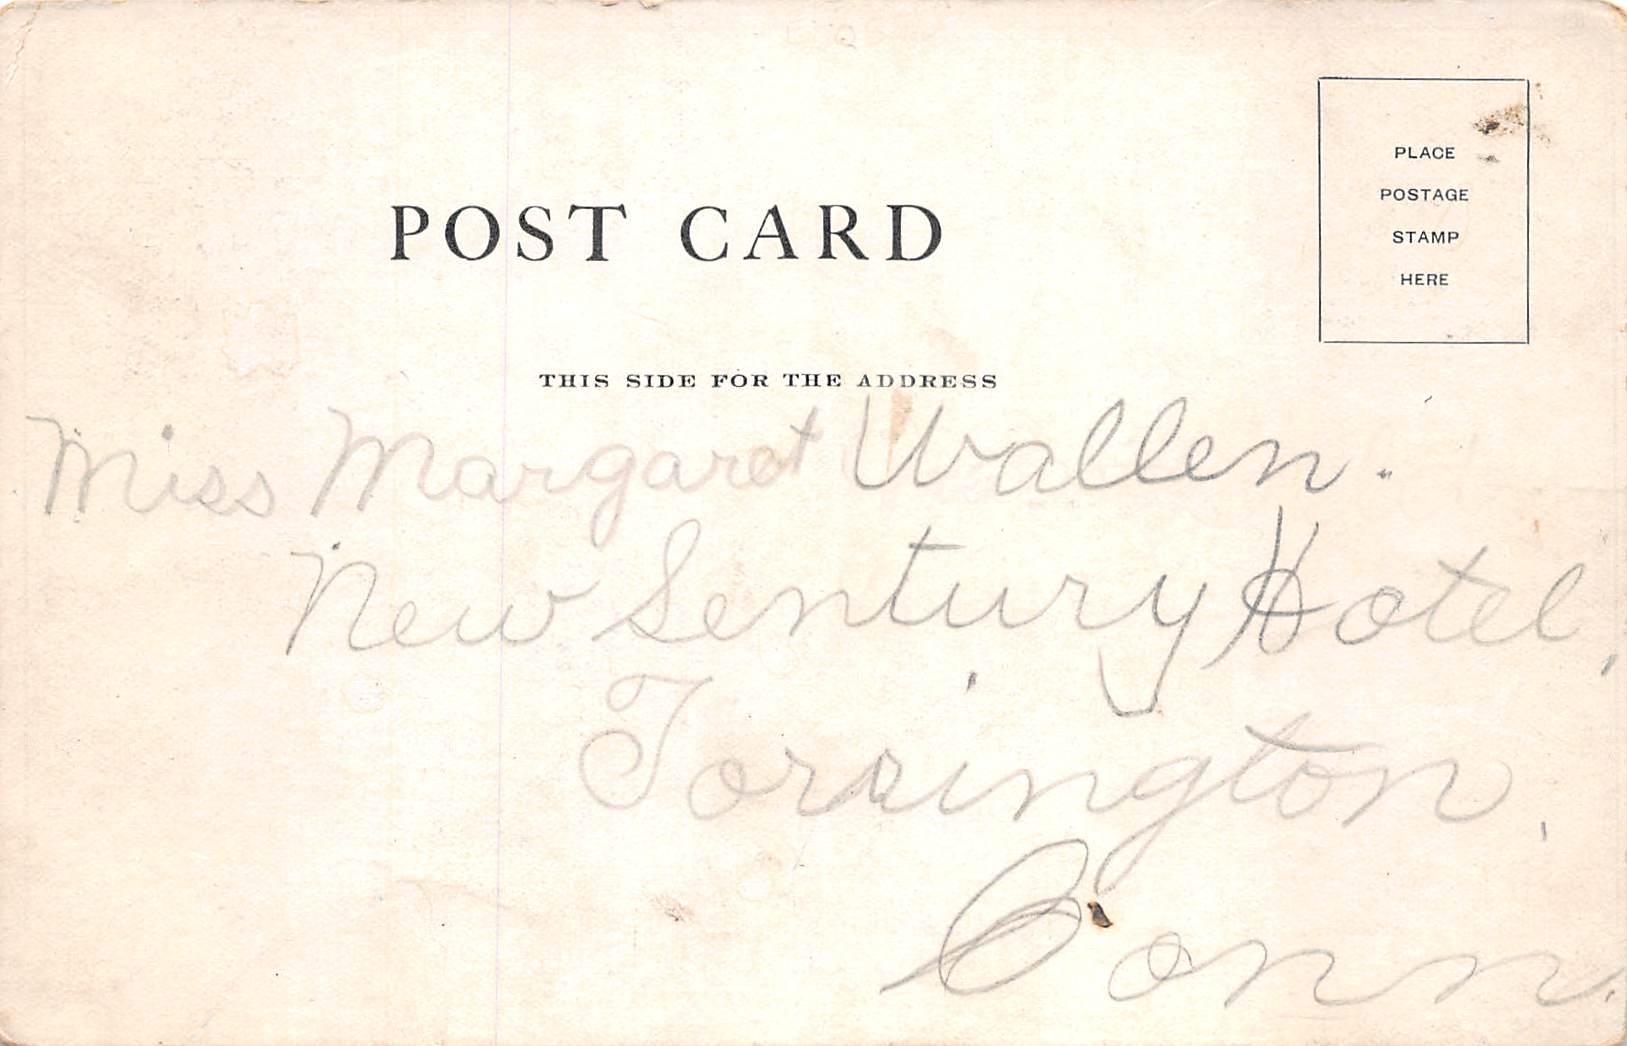 POST CARD
PLACE
POSTAGE
STAMP
HERE
THIS SIDE FOR THE ADDRESS
Miss Margaret Wallen.
New Sentury Hotel,
Torrington,
Conn.